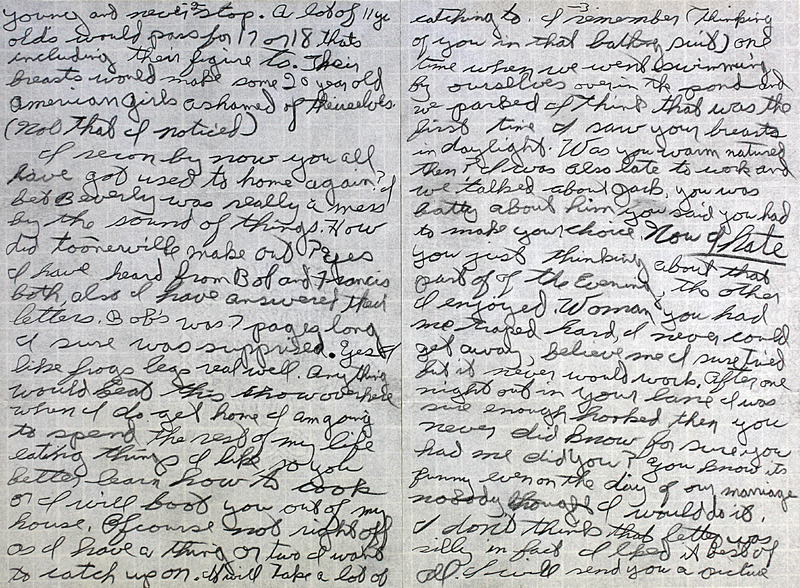 I recon by now you all
have got used to home again? I
bet Beverly was really a mess
by the sound of things. How
did toonerville make out? Yes
I have heard from Bob and Francis
both, also I have answered their
letters. Bob's was 7 pages long
I sure was supprised. Yes I
like frogs legs real well. Anything
would beat this chow over here
when I do get home I am going
to spend the rest of my life
eating things I like so you
better learn how to cook
or I will boot you out of my
house. Of course not right off
as I have a thing or two I want
to catch up on. It will take a lot of
catching to. I remember (thinking
of you in that bathing suit) one
time when we went swimming
by ourselves over in the pond and
we parked I think that was the
first time I saw your breasts
in daylight. Was you warm natured
then? I was also late to work and
we talked about Jack, you was
batty about him you said you had
to make your choice. Now I hate
you just thinking about that
part of of the Evening, the other
I enjoyed. Woman you had
me traped hard, I never could
get away, believe me I sure tried
but it never would work. After one
night out in your lane I was
sure enough hooked then you
never did know for sure you
had me did you? You know its
funny even on the day of our marriage
nobody thought I would do it.
I don't think that letter was
silly in fact I liked it best of
all. I will send you a picture